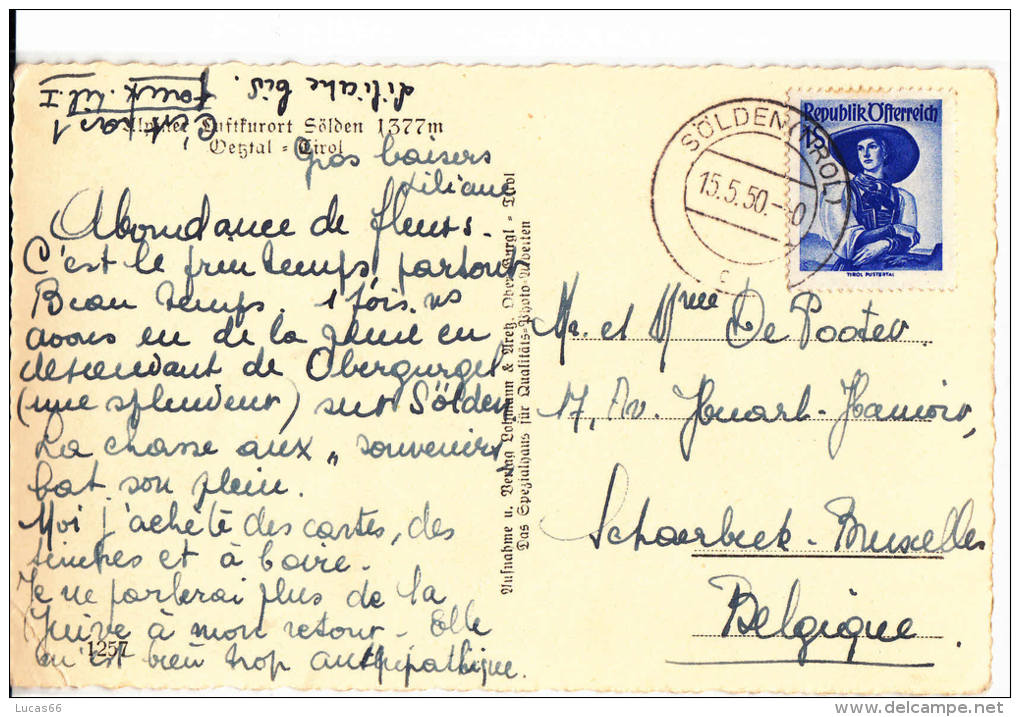 Liliane bis.
Alpiner Luftkurort Sölden 1377m
Oetztal - Tirol
Gros baisers
Liliane
Abondance de fleurs.
C'est le printemps partout
Beau temps. 1 fois ns
avons eu de la neige en
descendant de Obergurgel
(une splendeur) sur Sölden
La chasse aux „ souvenirs
bat son plein.
Moi j'achète des cartes, des
timbres et à boire.
Je ne parlerai plus de la
Juive à mon retour. Elle
m'est bien trop antipathique.
1257
Aufnahme u. Verlag Lohmann & Aretz, Ober-Gurgl - Tirol
Das Spezialhaus für Qualitäts-Photo-Arbeiten
SÖLDEN (TIROL)
15.5.50.-
c
Republik Österreich
TIROL PUSTERTAL
Mr. et Mme De Pooter
17, Av. Huart-Hamoir,
Schaerbeek-Bruxelles
Belgique.
Lucas66
www.delcampe.net